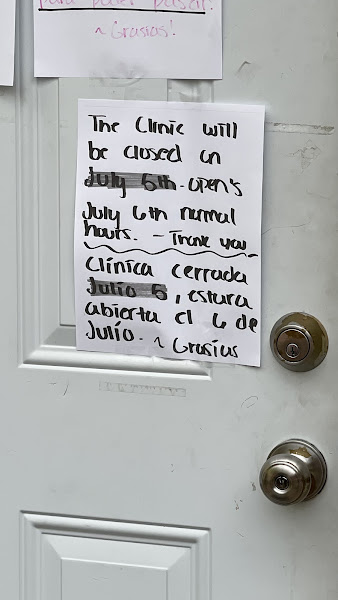 para poder pasar
~ Grasias!
The Clinic will
be closed on
July 5th - open's
July 6th normal
hours. - Thank you
Clínica cerrada
Julio 5, estara
abierta el 6 de
Julío. ~ Grasias